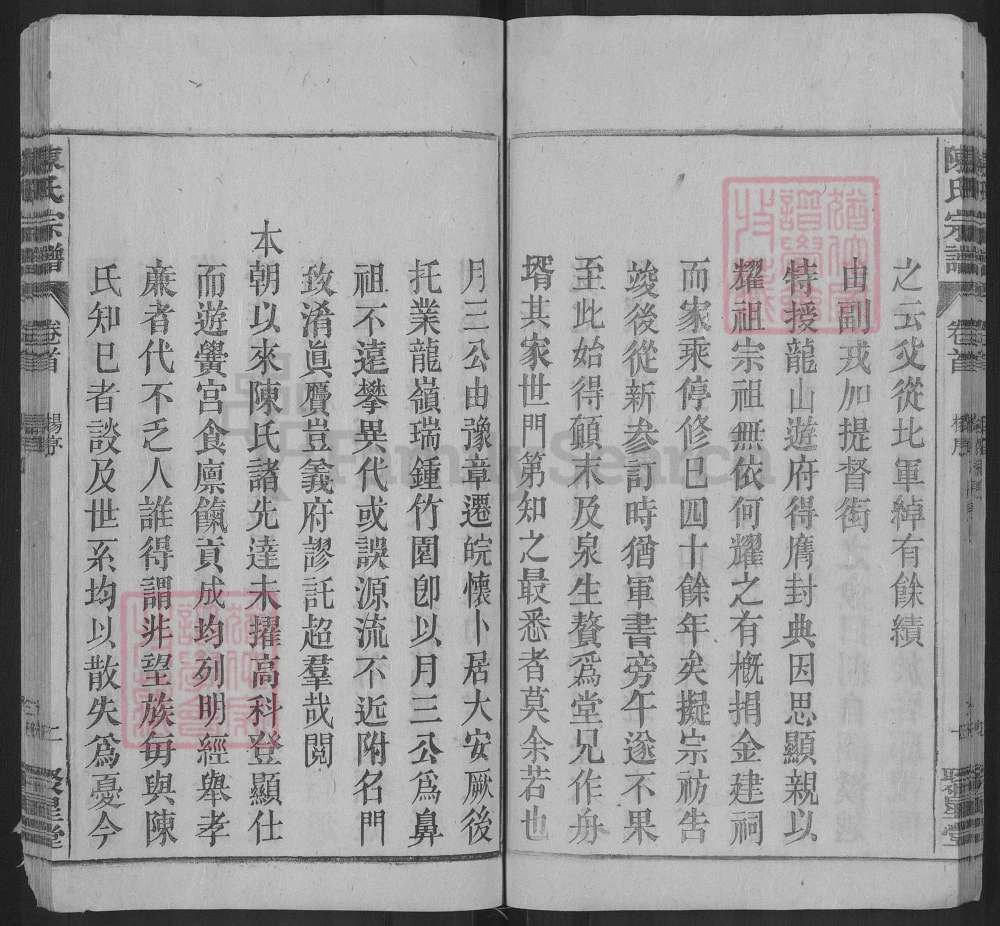 陳氏宗譜
卷首
楊序
聚星堂
之云父從北軍綽有餘績
由副戎加提督銜
特授龍山遊府得膺封典因思顯親以
耀祖宗祖無依何耀之有概捐金建祠
而家乘停修巳四十餘年矣擬宗祊告
竣後從新參訂時猶軍書旁午遂不果
至此始得顛末及泉生贅為堂兄作舟
壻其家世門第知之最悉者莫余若也
月三公由豫章遷皖懷卜居大安厥後
托業龍嶺瑞鍾竹園卽以月三公為鼻
祖不遠攀異代或誤源流不近附名門
致淆眞贗豈義府謬託超羣哉閱
本朝以來陳氏諸先達未擢高科登顯仕
而遊黌宮食廩餼貢成均列明經舉孝
亷者代不乏人誰得謂非望族每與陳
氏知巳者談及世系均以散失為憂今
陳氏宗譜
卷首
楊序
二
聚星堂
FamilySearch